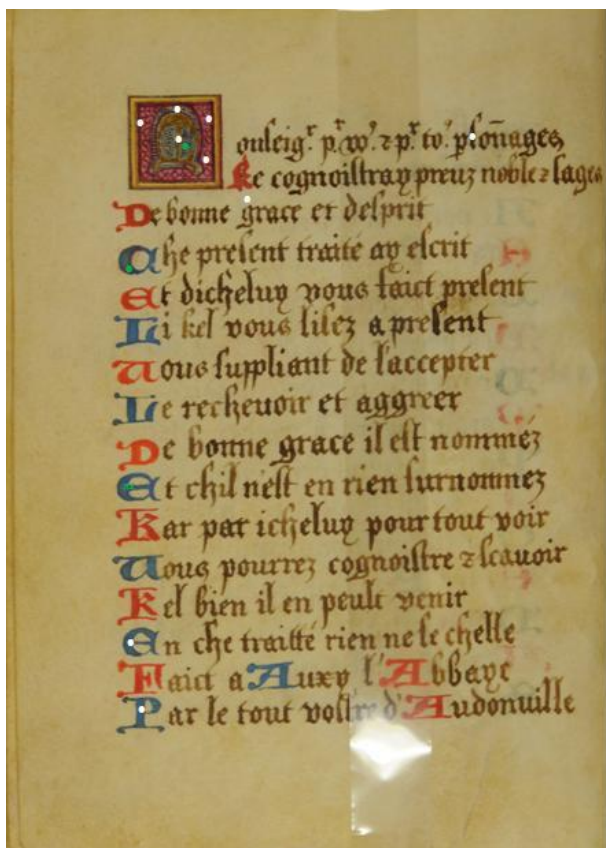 Monseigr pr vor & pr tor psoñages
Re cognoistray preuz noble & sages
De bonne grace et desprit
Che present traité ay escrit
Et dicheluy vous faict present
Li kel vous lisez a present
Vous suppliant de l'accepter
Le rechevoir et aggreer
De bonne grace il est nommez
Et chil n'est en rien surnommez
Kar par icheluy pour tout voir
Vous pourrez cognoistre & scavoir
Kel bien il en peult venir
En che traitté rien ne se chelle
Faict a Auxy l'Abbaye
Par le tout vostre d'Audonville